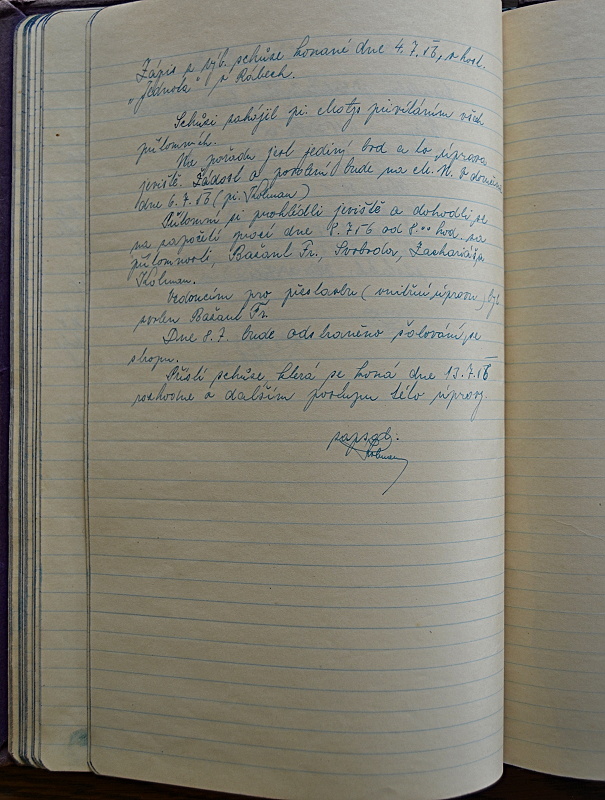 Zápis z výb. schůze konané dne 4.7.56, v host.
"Jednota" v Rábech.
Schůzi zahájil př. přivítáním všech
přítomných.
Na pořadu jest jediný bod a to úprava
jeviště. Žádost o povolení bude na M.N.V.
dne 6.7.56 (př. Kolman)
Přítomní si prohlédli jeviště a dohodli se
na započetí prací dne 8.7.56 od 8.00 hod. za
přítomnosti, Bažant Fr., Svoboda, Zachariáš, a
Kolman.
Vedoucím pro přestavbu (vnitřní úpravu) byl
zvolen Bažant Fr.
Dne 8.7. bude odstraněno šalování ze
stropu.
Příští schůze která se koná dne 13.7.56
rozhodne o dalším postupu této úpravy.
zapsal.
Kolman